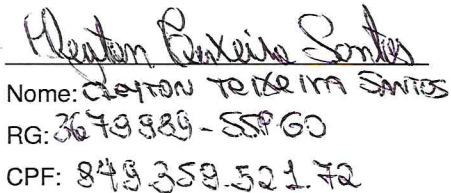 Cleyton Teixeira Santos
Nome: CLEYTON TEIXEIRA SANTOS
RG: 3679989-SSPGO
CPF: 849.359.521.72